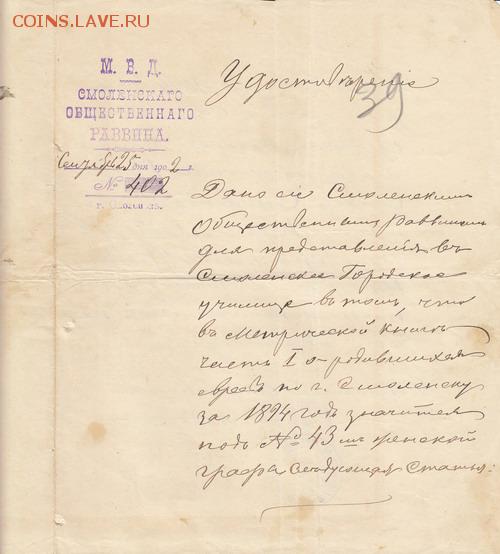 COINS.LAVE.RU
М. В. Д.
СМОЛЕНСКАГО
ОБЩЕСТВЕННАГО
РАВВИНА.
Сентября 25 дня 1902 г.
№ 402
г. Смоленскъ.
Удостовѣреніе
39
Дано сіе Смоленскимъ
Общественнымъ раввиномъ
для представленія въ
Смоленское Городское
училище въ томъ, что
въ Метрической книгѣ
часть I о родившихся
евреевъ по г. Смоленску
за 1894 годъ значится
подъ № 43 мъ женской
графы Слѣдующая Статья: